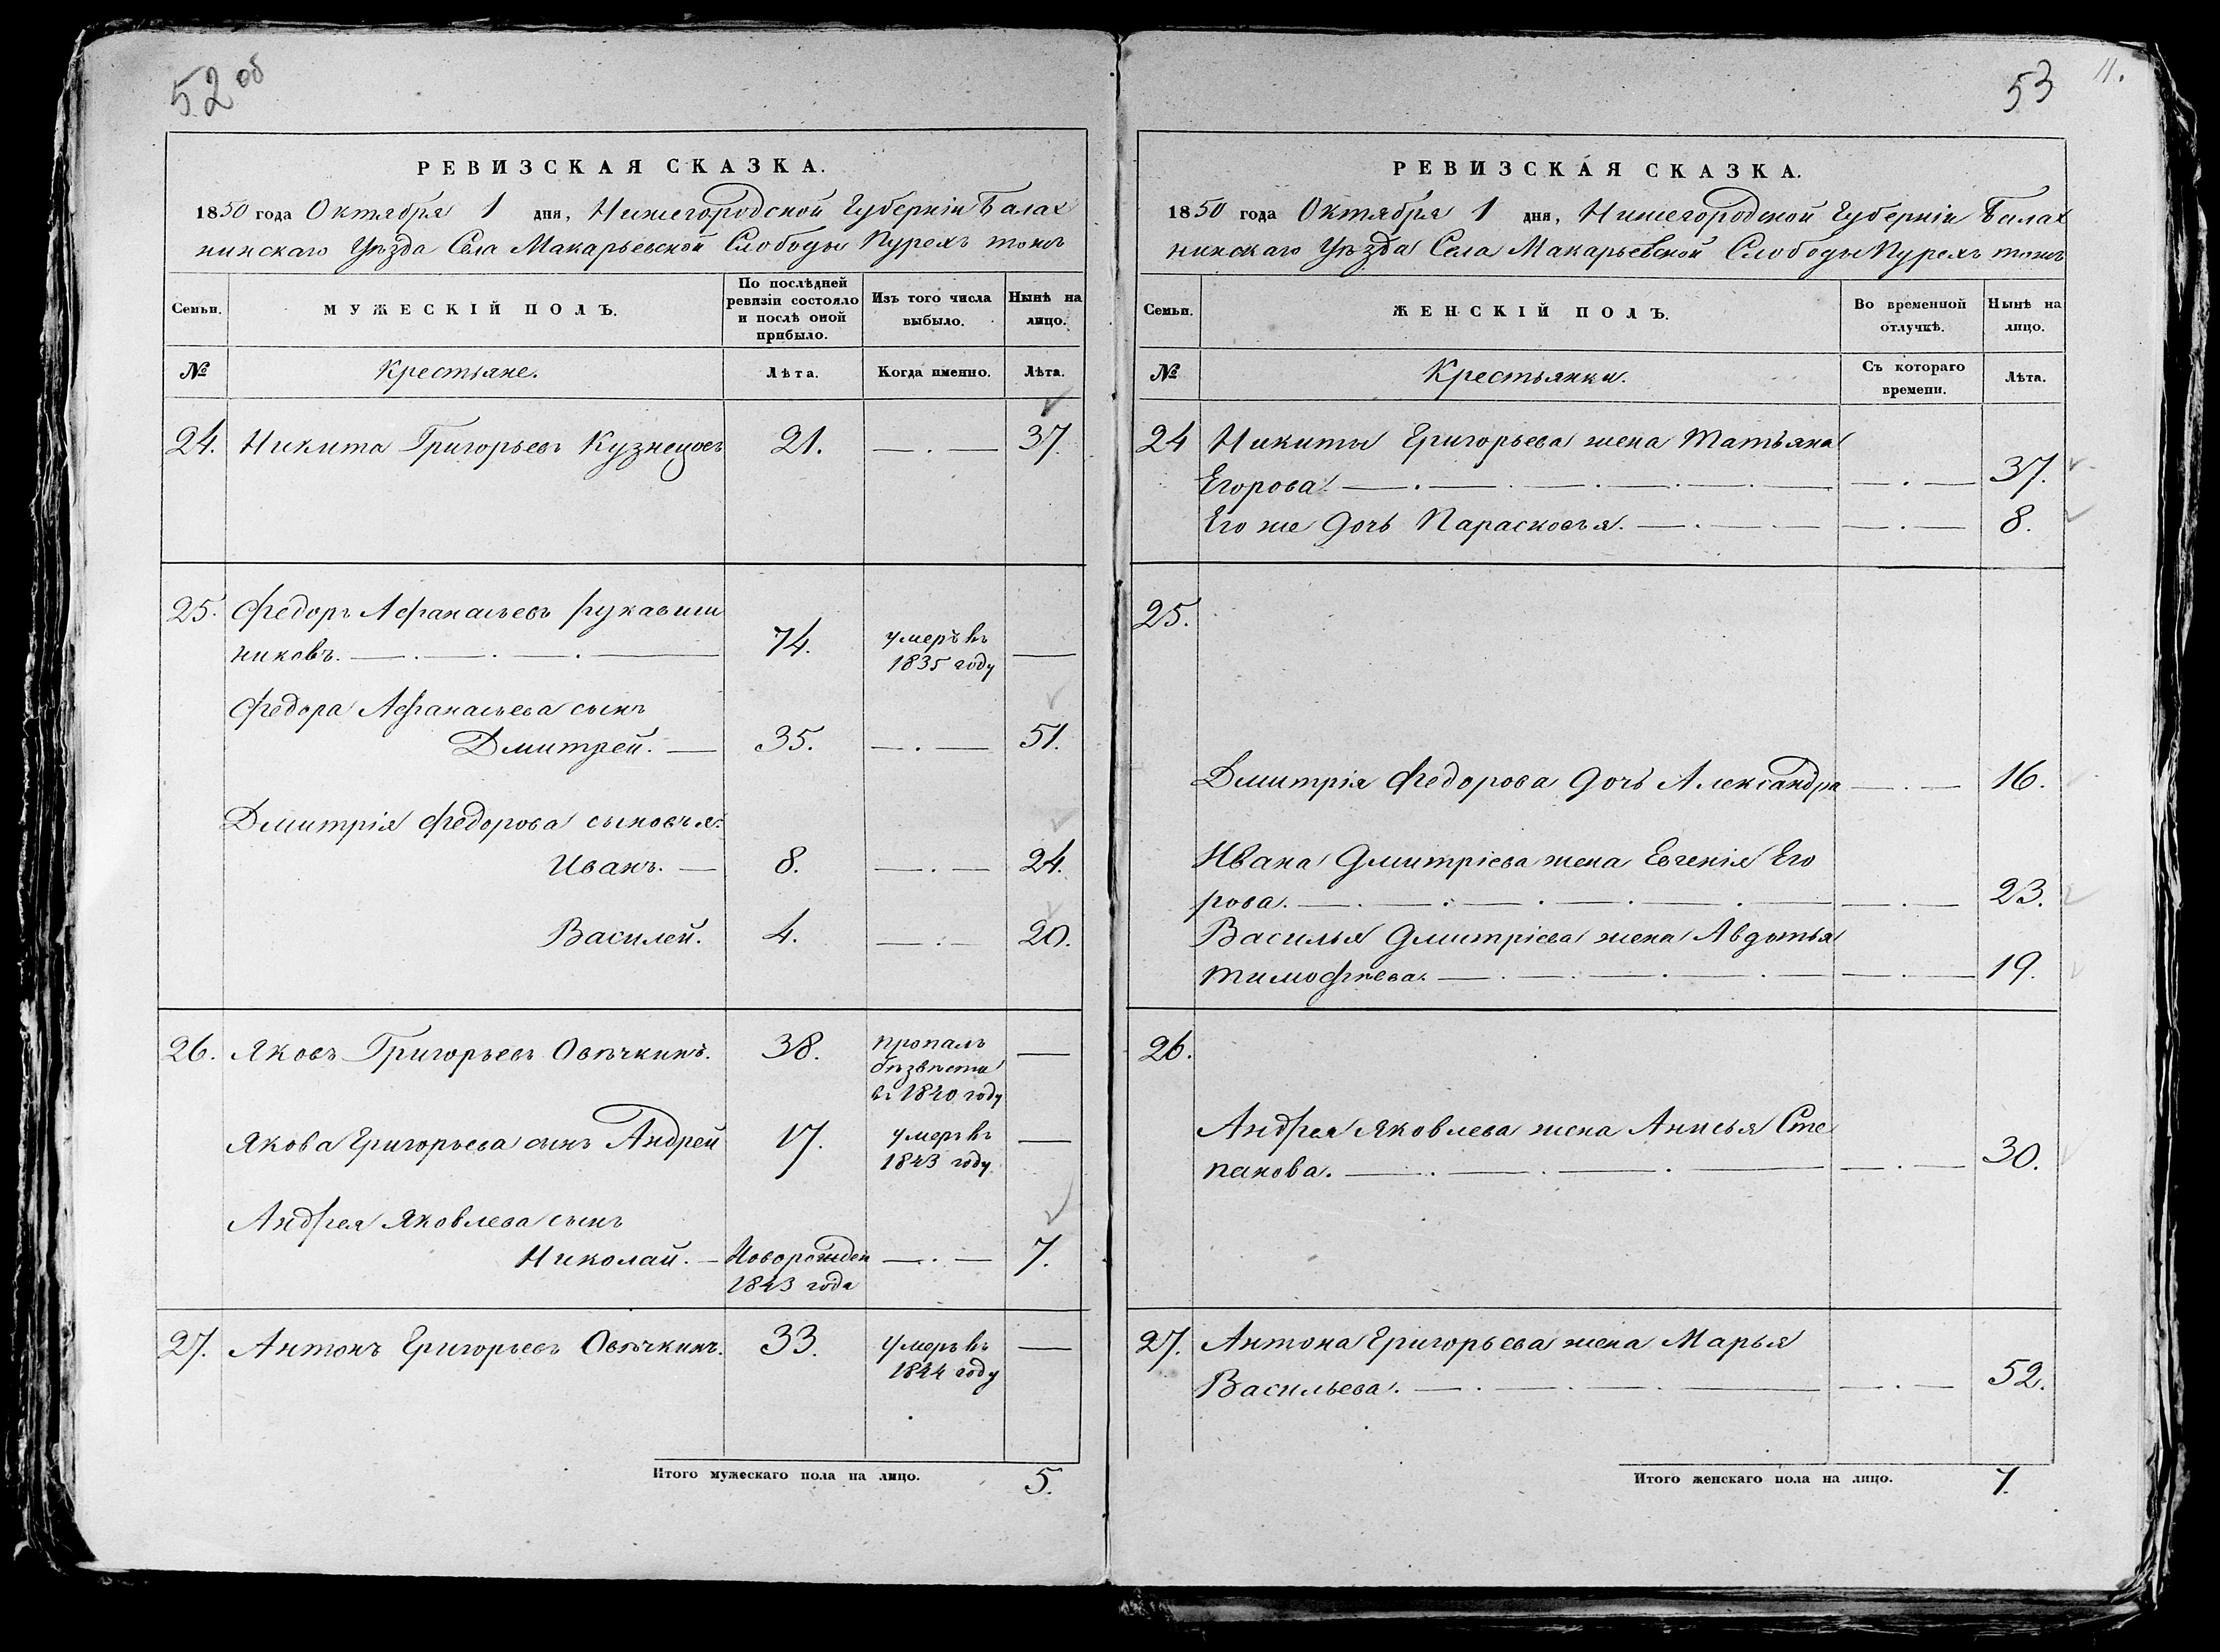 52 об
РЕВИЗСКАЯ СКАЗКА.
1850 года Октября 1 дня, Нижегородской Губерніи Балах
нинскаго Уѣзда Села Макарьевской Слободы Пурехъ тожъ
Семьи.
МУЖЕСКІЙ ПОЛЪ.
По послѣдней
ревизіи состояло
и послѣ оной
прибыло.
Изъ того числа
выбыло.
Нынѣ на
лицо.
№
Крестьяне.
Лѣта.
Когда именно.
Лѣта.
24. Никита Григорьевъ Кузнецовъ 21. 37.
25. Федоръ Афанасьевъ Рукавиш
никовъ. 74. умеръ въ
1835 году
Федора Афанасьева сынъ
Дмитрей. 35. 51.
Дмитрія Федорова сыновья:
Иванъ. 8. 24.
Василей. 4. 20.
26. Яковъ Григорьевъ Овѣчкинъ. 38. пропалъ
бѣзвѣсти
въ 1840 году
Якова Григорьева сынъ Андрей 17. умеръ въ
1843 году
Андрея Яковлева сынъ
Николай. Новорожден 7.
1843 года
27. Антонъ Григорьевъ Овѣчкинъ. 33. умеръ въ
1844 году
Итого мужескаго пола на лицо. 5.
53
11.
РЕВИЗСКАЯ СКАЗКА.
1850 года Октября 1 дня, Нижегородской Губерніи Балах
нинскаго Уѣзда Села Макарьевской Слободы Пурехъ тожъ
Семьи.
ЖЕНСКІЙ ПОЛЪ.
Во временной
отлучкѣ.
Нынѣ на
лицо.
№
Крестьянки.
Съ котораго
времени.
Лѣта.
24 Никиты Григорьева жена Татьяна
Егорова. 37.
Его же дочь Парасковья. 8.
25.
Дмитрія Федорова дочь Александра 16.
Ивана Дмитріева жена Евгенія Его
рова. 23.
Василья Дмитріева жена Авдотья
Тимофѣева. 19.
26.
Андрея Яковлева жена Анисья Сте
панова. 30.
27. Антона Григорьева жена Марья
Васильева. 52.
Итого женскаго пола на лицо. 7.